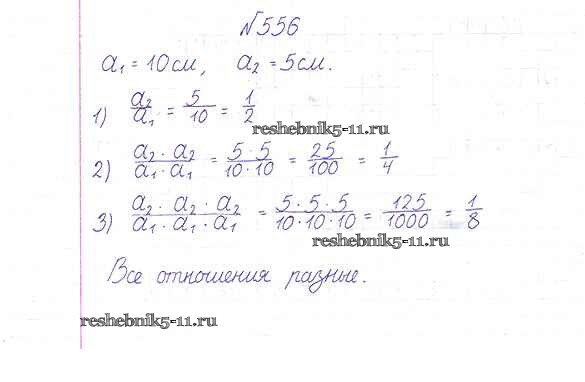 №556
a₁ = 10 см, a₂ = 5 см.
1) a₂/a₁ = 5/10 = 1/2
reshebnik5-11.ru
2) a₂ · a₂/a₁ · a₁ = 5 · 5/10 · 10 = 25/100 = 1/4
3) a₂ · a₂ · a₂/a₁ · a₁ · a₁ = 5 · 5 · 5/10 · 10 · 10 = 125/1000 = 1/8
reshebnik5-11.ru
Все отношения разные.
reshebnik5-11.ru